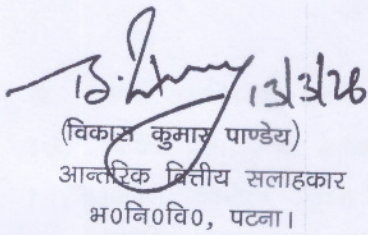 13/3/26
(विकास कुमार पाण्डेय)
आन्तरिक वित्तीय सलाहकार
भ०नि०वि०, पटना।